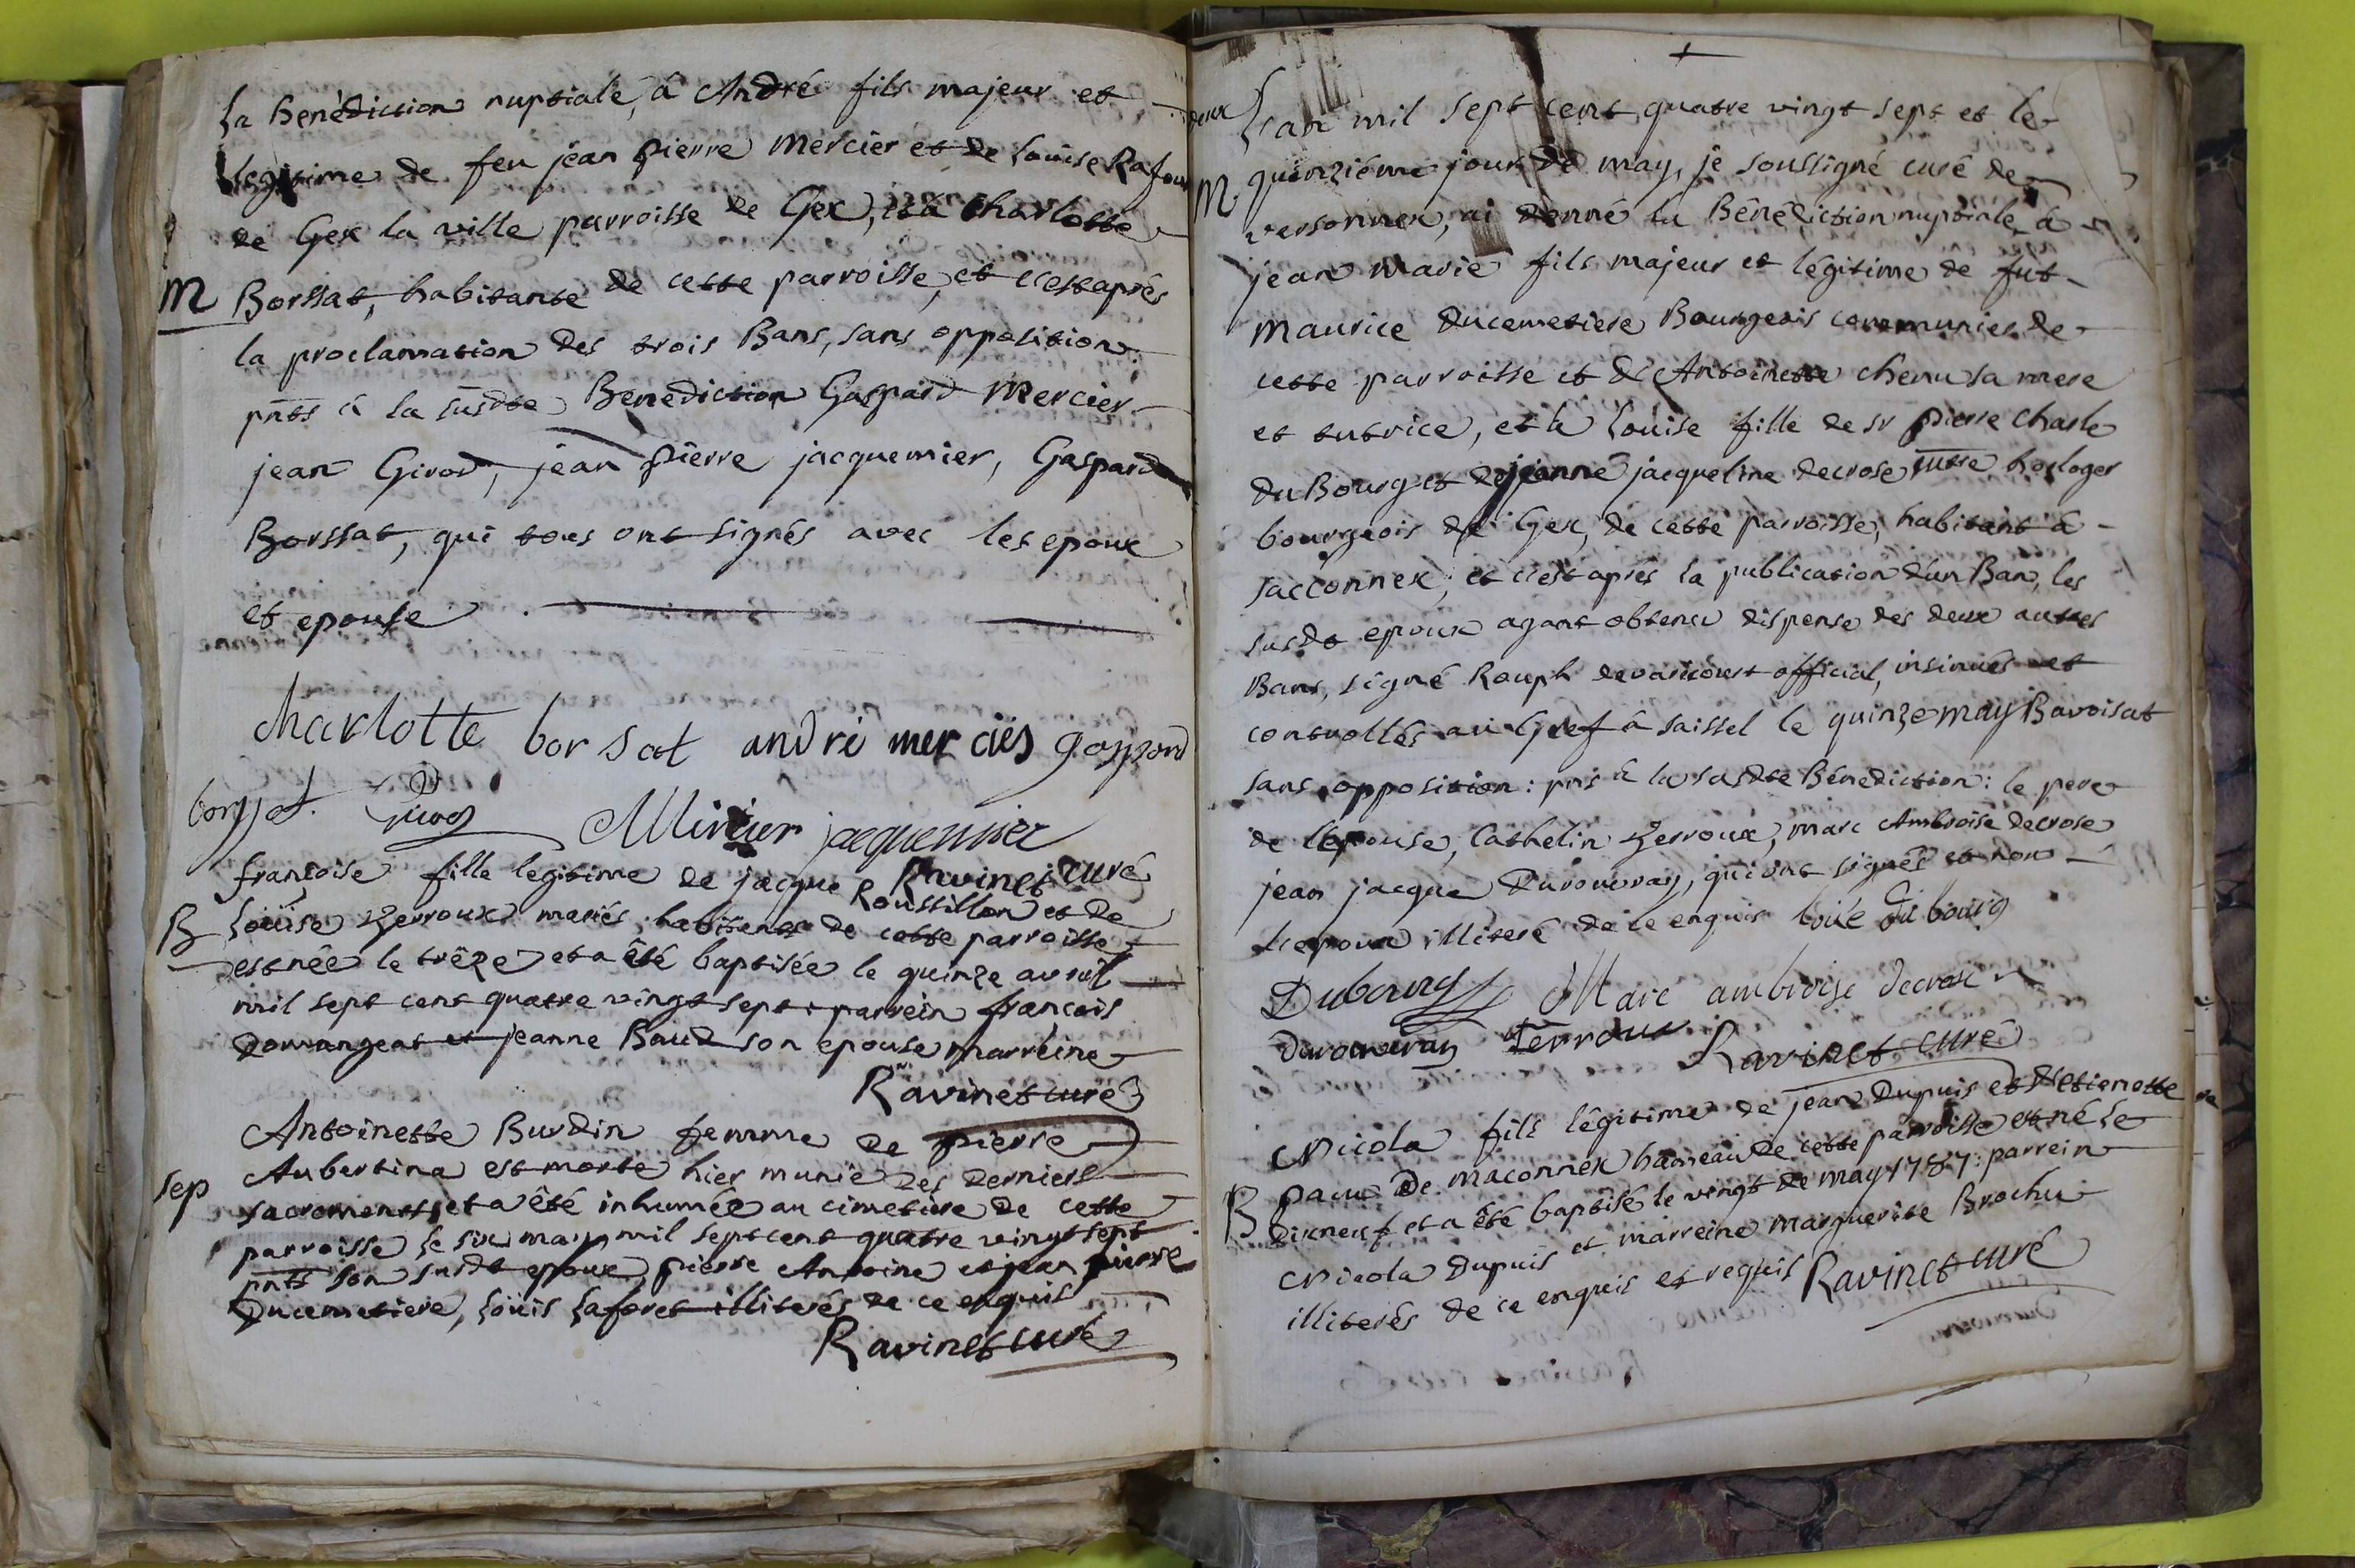 la benédiction nuptiale, â André fils majeur et
legitime de feu jean pierre Mercier et de Louise Rafour
de Gex la ville parroisse de Gex, et â Charlotte
M Borssat, habitante de cette parroisse, et c'est aprés
la proclamation des trois Bans, sans opposition
pnts â la susdte Benediction Gaspard Mercier
jean Girod, jean pierre jacquemier, Gaspard
Borssat, qui tous ont signés avec les epoux
et epouse
charlotte borsat andré merciés gaspard
borssat. Girod Mircier jaquemier
Ravinet curé
françoise fille legitime de jacque Roussillon et de
B Loüise Zerroux mariés, habitents de cette parroisse
est née le trêze et a êté baptisée le quinze avril
mil sept cent quatre vingt sept. parrein françois
Domangeat et jeanne Baud son epouse marreine
Ravinet curé
Antoinette Burdin femme de pierre
Sep Aubertina est morte hier munie des derniers
sacrements, et a êté inhumée au cimetiere de cette
parroisse le six may mil sept cent quatre vingt sept
pnts son susdt epoux, pierre Antoine et jean pierre
Ducemetiere, Loüis Laforet illiterés de ce enquis
Ravinet curé
deux
L'an mil sept cent quatre vingt sept et le
M quinziéme jour de may, je soussigné curé de
versonnex, ai donné la Bénédiction nuptiale, â
jean marie fils majeur et légitime de fut
Maurice Ducemetiere Bourgeois communier de
cette parroisse et d'Antoinette chenu sa mere
et tutrice, et â Louise fille de sr pierre Charle
du Bourg et de jeanne jacqueline decrose horloger
bourgeois de Gex, de cette parroisse, habitant â
sacconnex; et c'est aprés la publication d'un Ban, les
susdts epoux ayant obtenu dispense des deux autres
Bans, signé Rouph devaricourt official, insinués et
controllés au Gref â saissel le quinze may Bavoisat
sans opposition: pnts â la susdte Bénediction: le pere
de l'epouse, Cathelin Zerroux, marc Ambroise Decrose
jean jacque Durouvray, qui ont signés et non
l'epoux illiteré de ce enquis loüise du bourg
Dubourg Marc ambroise decrose
Durouvray Terroux Ravinet curé
Nicola fils légitime de jean Dupuis et d'etienette
B pacu de maconnex hameau de cette parroisse est né le
dixneuf et a êté baptisé le vingt de may 1787: parrein
Nicola Dupuis et marreine marguerite Brochu
illiterés de ce enquis et requis Ravinet curé